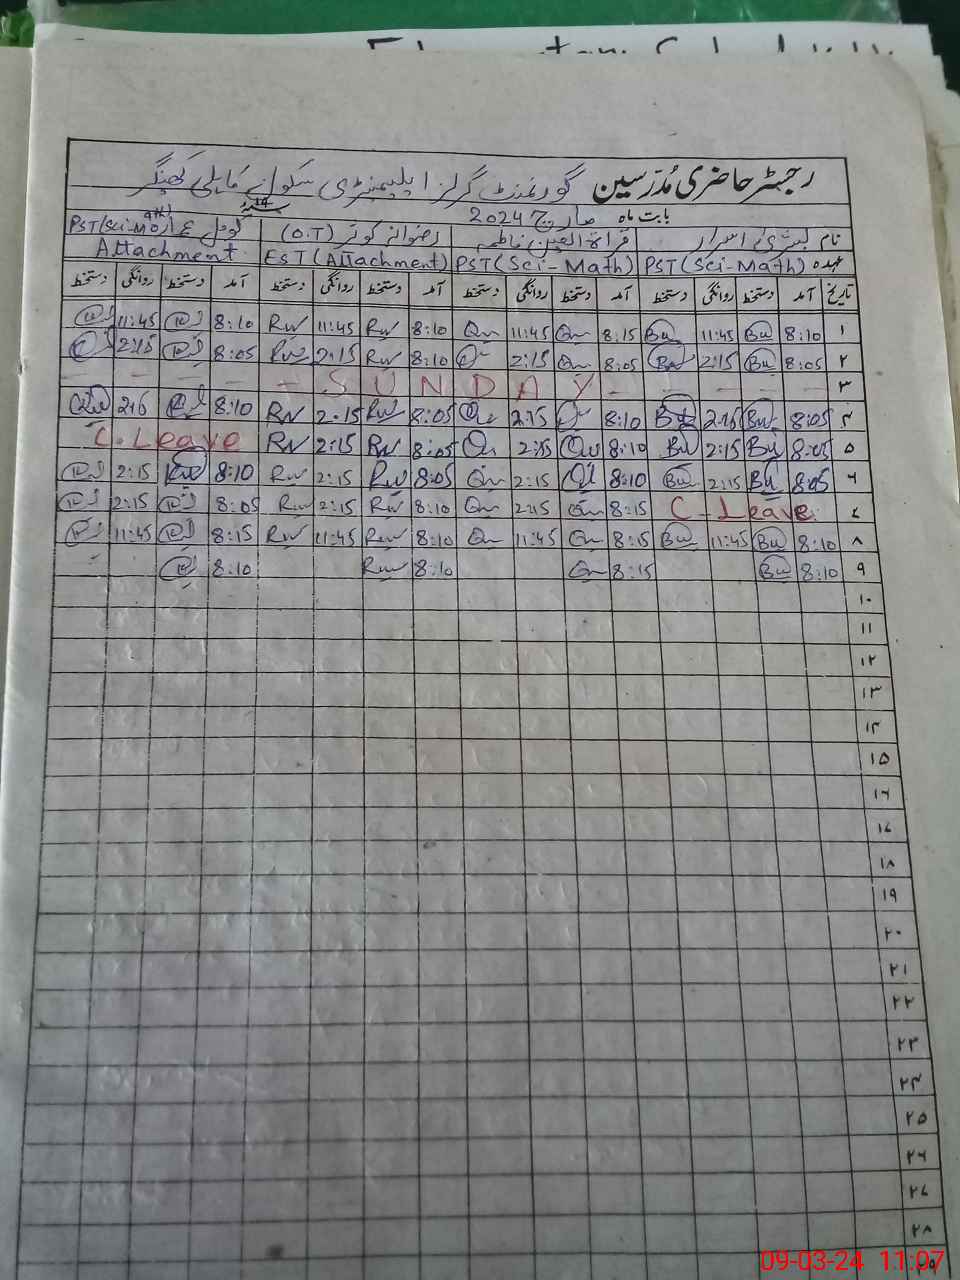 رجسٹر حاضری مُدرّسین گورنمنٹ گرلز ایلیمنٹری سکول
بابت ماہ مارچ 2024
نام بشریٰ اسرار قراۃ العین فاطمہ رضوانہ کوثر (O.T) کومل
عہدہ PST (Sci-Math) PST (Sci-Math) EST (Attachment) PST (Sci-Math) Attachment
تاریخ آمد دستخط روانگی دستخط آمد دستخط روانگی دستخط آمد دستخط روانگی دستخط آمد دستخط روانگی دستخط
۱ 8:10 Bu 11:45 Bu 8:15 Qu 11:45 Qu 8:10 Rw 11:45 Rw 8:10 11:45
۲ 8:05 Bu 2:15 Bu 8:05 Qu 2:15 8:10 Rw 2:15 Rw 8:05 2:15
۳ - SUNDAY -
۴ 8:05 Bu 2:15 Bu 8:10 2:15 Qu 8:05 Rw 2:15 Rw 8:10
۵ 8:05 Bu 2:15 Bu 8:10 Qu 2:15 Qu 8:05 Rw 2:15 Rw C. Leave
۶ 8:05 Bu 2:15 Bu 8:10 Qu 2:15 Qu 8:05 Rw 2:15 Rw 8:10 2:15
۷ C - Leave 8:15 Qu 2:15 Qu 8:10 Rw 2:15 Rw 8:05 2:15
۸ 8:10 Bu 11:45 Bu 8:15 Qu 11:45 Qu 8:10 Rw 11:45 Rw 8:15 11:45
۹ 8:10 Bu 8:15 Qu 8:10 Rw 8:10
۱۰
۱۱
۱۲
۱۳
۱۴
۱۵
۱۶
۱۷
۱۸
۱۹
۲۰
۲۱
۲۲
۲۳
۲۴
۲۵
۲۶
۲۷
۲۸
۲۹
09-03-24 11:07